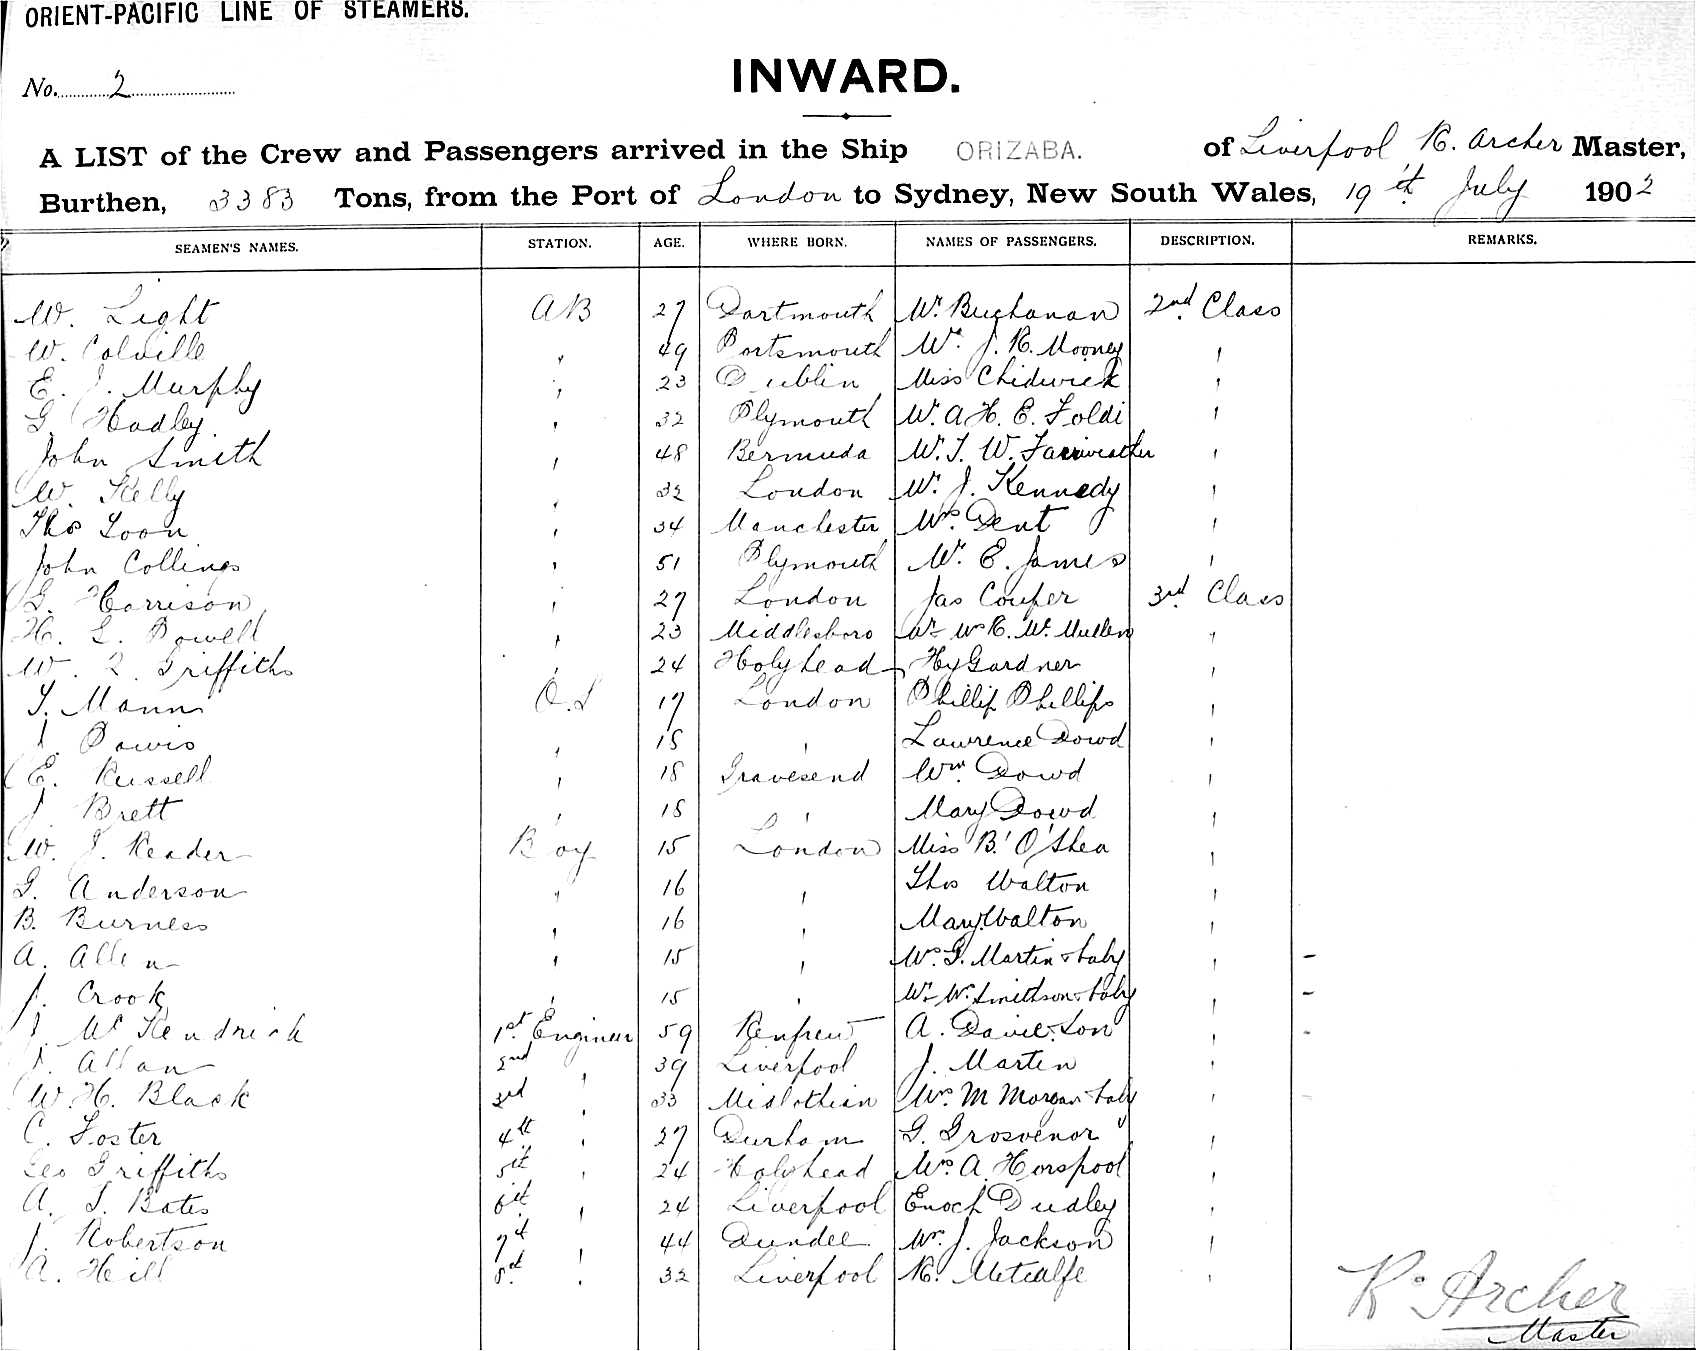 ORIENT-PACIFIC LINE OF STEAMERS.
No. 2
INWARD.
A LIST of the Crew and Passengers arrived in the Ship ORIZABA. of Liverpool R. Archer Master,
Burthen, 3383 Tons, from the Port of London to Sydney, New South Wales, 19th July 1902
SEAMEN'S NAMES. STATION. AGE. WHERE BORN. NAMES OF PASSENGERS. DESCRIPTION. REMARKS.
W. Light AB 27 Dartmouth Mr Buchanan 2nd Class
W. Colville " 49 Portsmouth Mr. J. R. Mooney "
E. J. Murphy " 23 Dublin Miss Chidwick "
G. Hadley " 32 Plymouth Mr. A H. E. Foldi "
John Smith " 48 Bermuda Mr. T. W. Fairweather "
W. Kelly " 32 London Mr. J. Kennedy "
Thos Loon " 34 Manchester Mrs. Dent "
John Collings " 51 Plymouth Mr. E. James "
G. Harrison " 27 London Jas Couper 3rd Class
H. L. Powell " 23 Middlesboro Mr Mullen "
W. Griffiths " 24 Holyhead Hy Gardner "
T. Mann O.S 17 London Phillip Phillips "
Powis " 18 " Lawrence Dowd "
E. Russell " 18 Gravesend Wm. Dowd "
J. Brett " 18 " Mary Dowd "
W. J. Reader Boy 15 London Miss B. O'Shea "
G. Anderson " 16 " Thos Walton "
B. Burness " 16 " Mary Walton "
A. Allen " 15 " Mrs. G. Martin & baby " -
J. Crook " 15 " Smithson & baby " -
J. McKendrick 1st Engineer 59 Renfrew A. Davidson " -
J. Allan 2nd " 39 Liverpool J. Martin "
W. H. Black 3rd " 33 Midlothian Mrs. M Morgan & baby " -
C. Foster 4th " 27 Durham G. Grosvenor "
Geo Griffiths 5th " 24 Holyhead Mrs. A. Horspool "
A. T. Bates 6th " 24 Liverpool Enoch Dudley "
J. Robertson 7th " 44 Dundee Mr. J. Jackson "
A. Hill 8th " 32 Liverpool R. Metcalfe "
R. Archer
Master